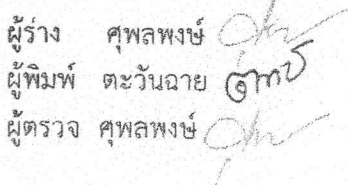 ผู้ร่าง ศุพลพงษ์
ผู้พิมพ์ ตะวันฉาย
ผู้ตรวจ ศุพลพงษ์